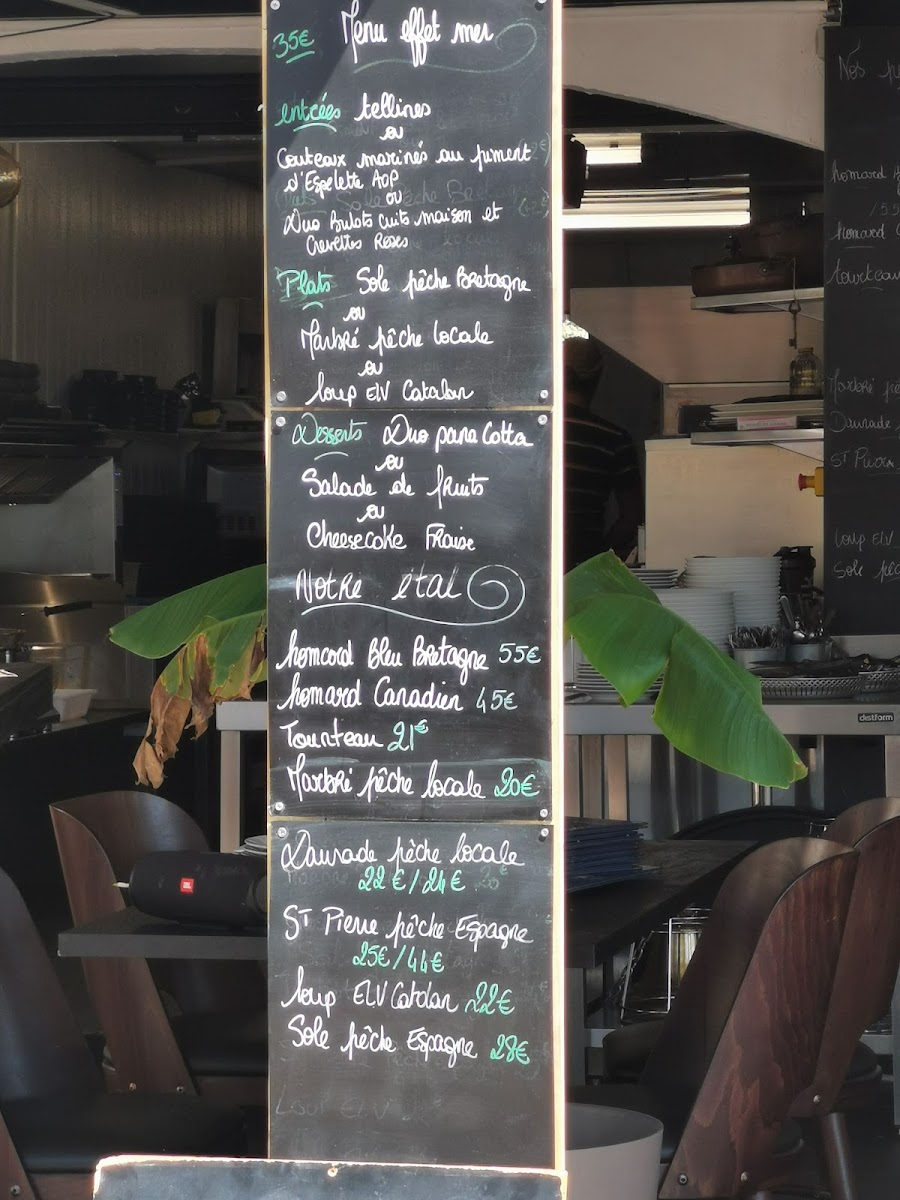 35€ Menu effet mer
entrées tellines
ou
Couteaux marinés au piment
d'Espelette AOP
ou
Duo Bulots cuits maison et
Crevettes Roses
Plats Sole pêche Bretagne
ou
Marbré pêche locale
ou
loup ELV Catalan
Desserts Duo pana Cotta
ou
Salade de fruits
ou
Cheesecake Fraise
Notre étal
homard Bleu Bretagne 55€
homard Canadien 45€
Tourteau 21€
Marbré pêche locale 20€
Daurade pêche locale
22€/24€
ST Pierre pêche Espagne
25€/44€
loup ELV Catalan 22€
Sole pêche Espagne 28€
JBL
Nos
homard
homard
tourteau
Marbré
Daurade
ST Pierre
loup ELV
Sole
distform